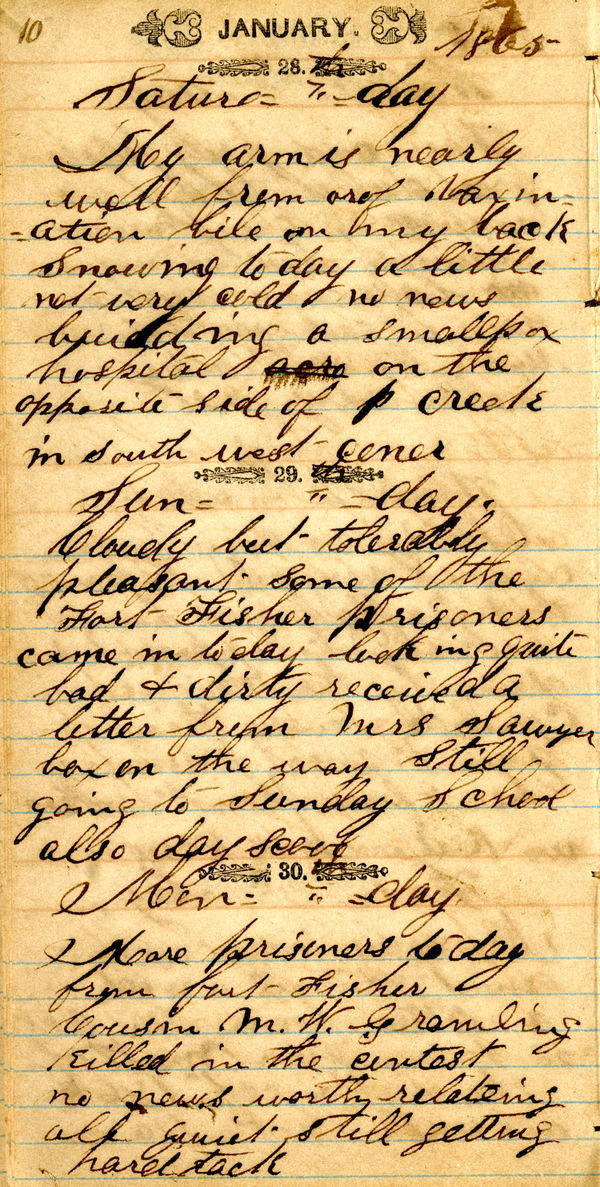 10 JANUARY. 1865
28.th
Satur= " =day
My arm is nearly
well from of Vaxin=
=ation bile on my back
Snowing today a little
not very cold no news
building a smallpox
hospital on the
opposite side of p creek
in south west coner
29.th
Sun= " =day.
Cloudy but tolerably
pleasant some of the
Fort Fisher Prisoners
came in today looking quite
bad & dirty received a
letter from Mrs Sawyer
box on the way Still
going to Sunday School
also day
30.th
Mon= " =day
More prisoners today
from fort Fisher
Cousin M. W. Gramling
killed in the contest
no news worthy relateing
all quiet still getting
hard tack